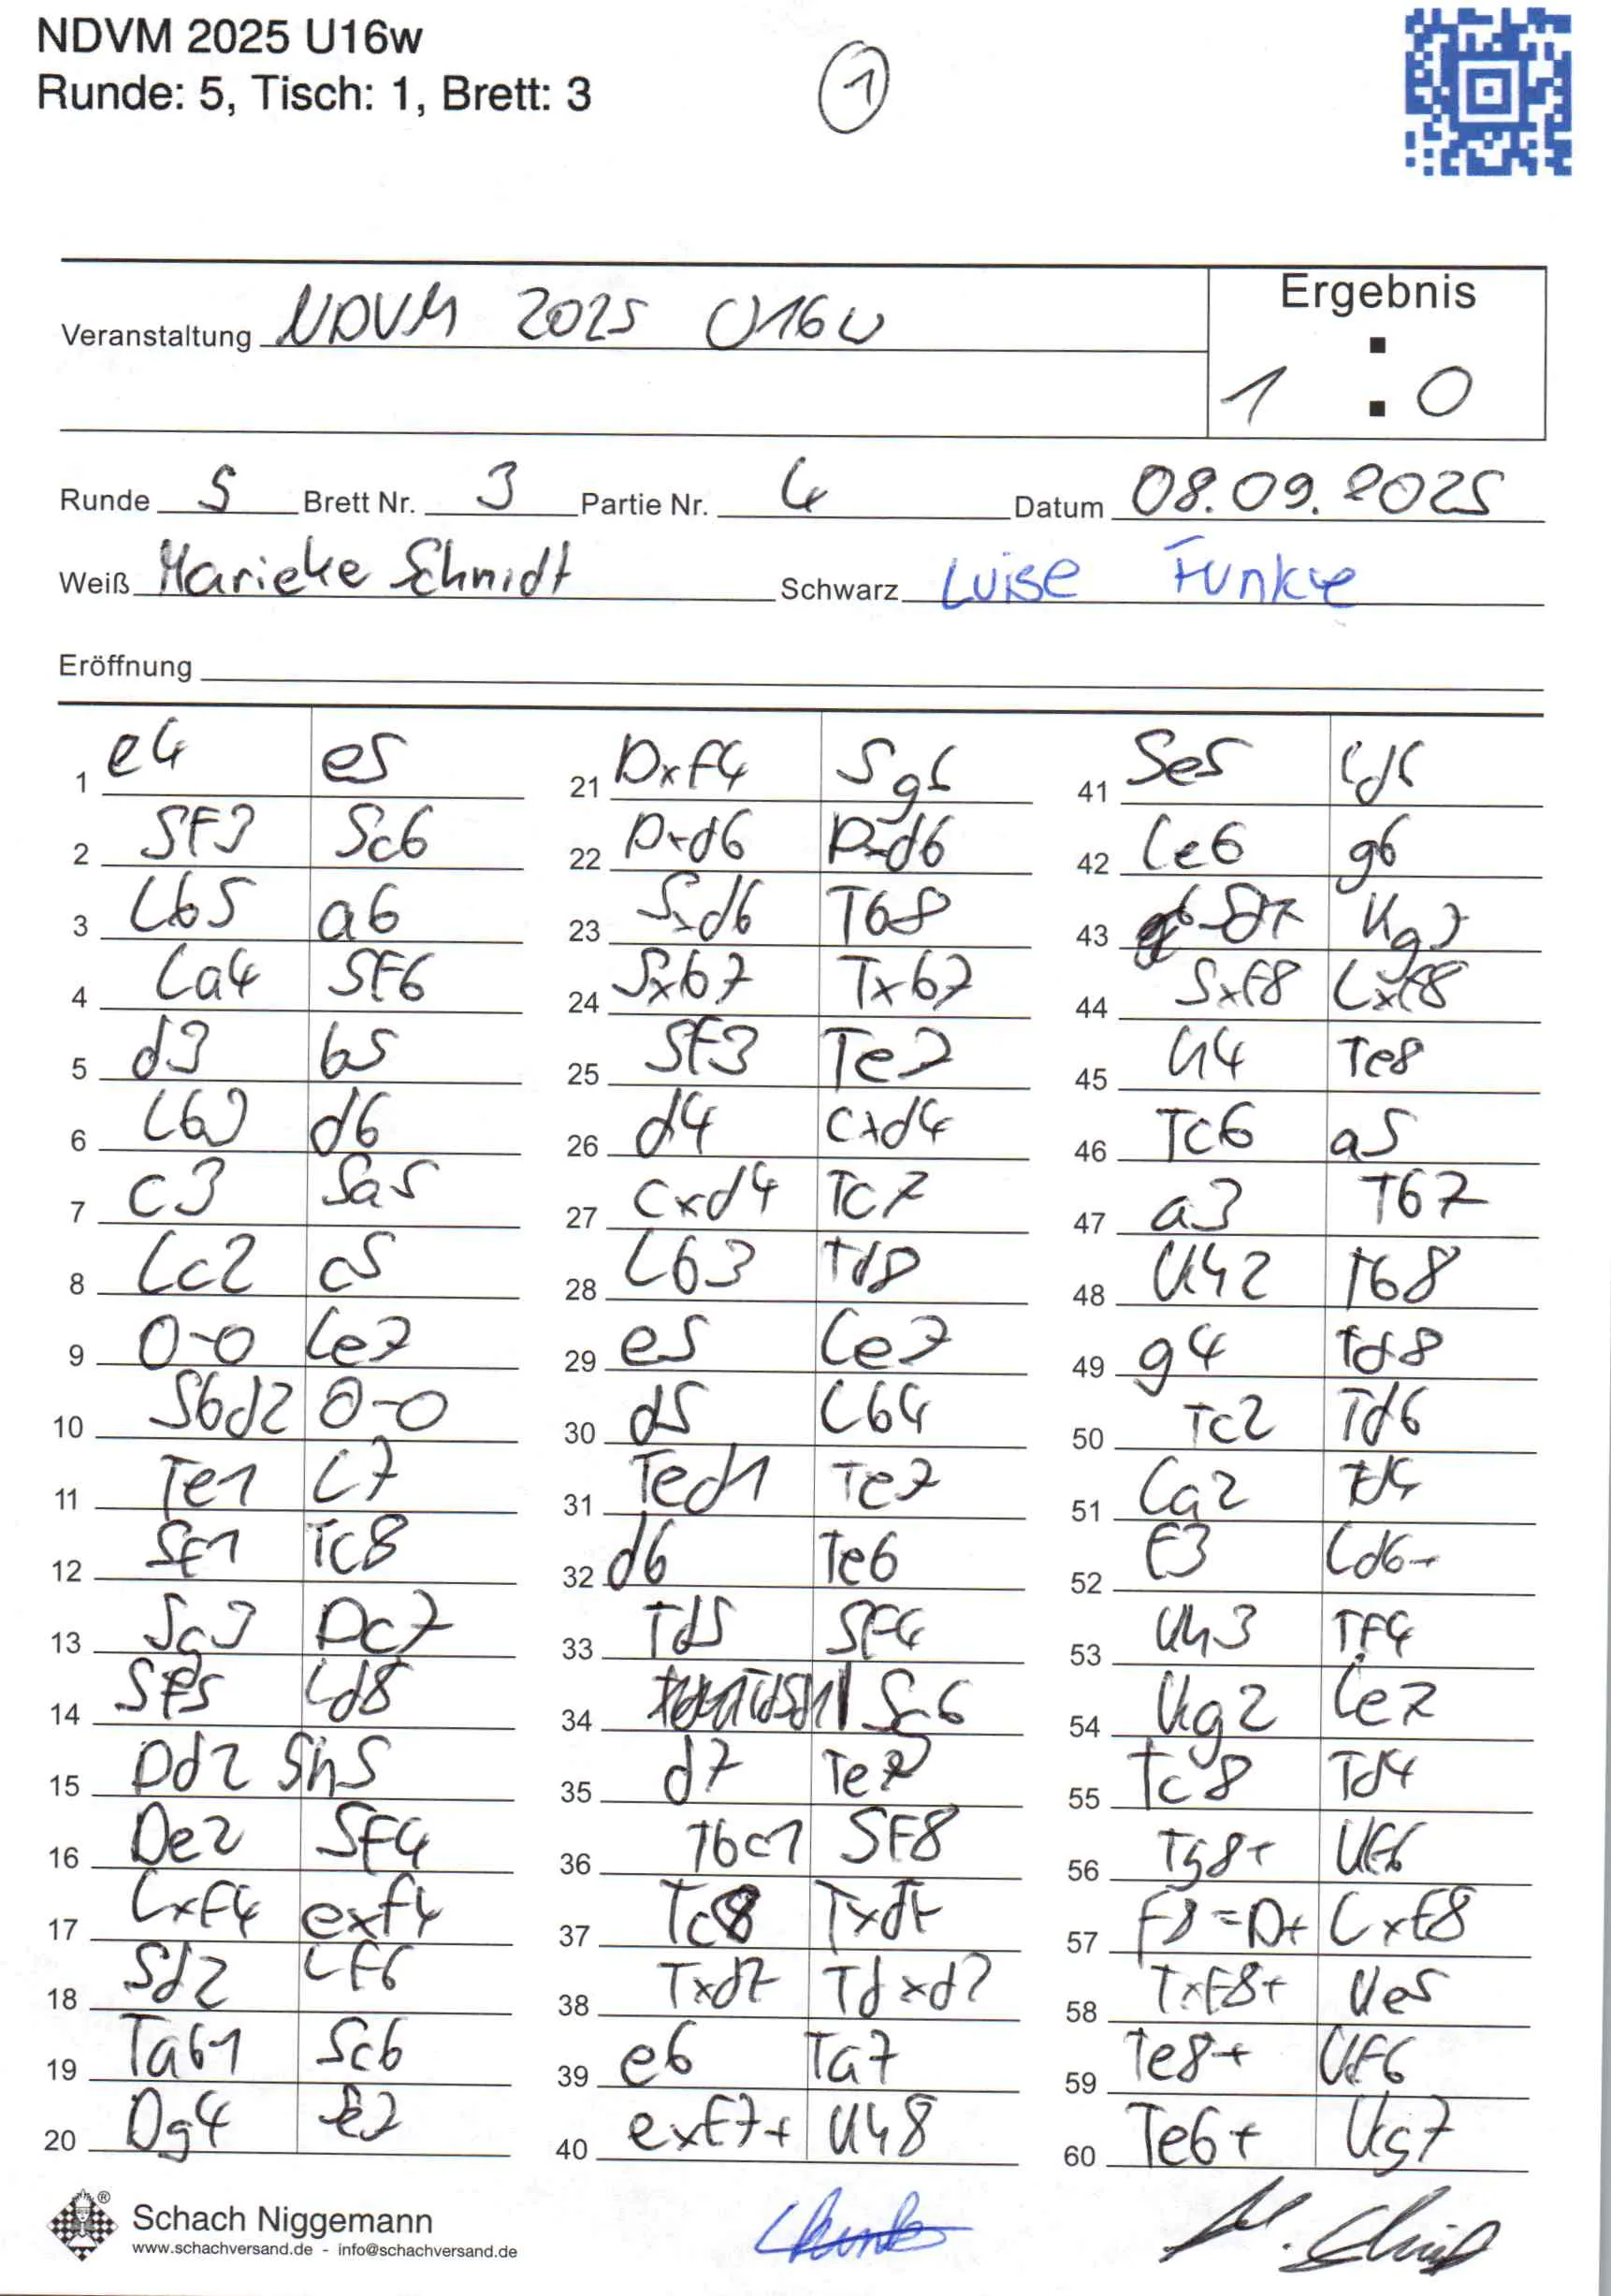 NDVM 2025 U16w
Runde: 5, Tisch: 1, Brett: 3
1
Ergebnis
Veranstaltung NDVM 2025 U16w
1 : 0
Runde 5 Brett Nr. 3 Partie Nr. 4 Datum 08.09.2025
Weiß Marieke Schmidt Schwarz Luise Funke
Eröffnung
1 e4 e5
2 Sf3 Sc6
3 Lb5 a6
4 La4 Sf6
5 d3 b5
6 Lb3 d6
7 c3 Sa5
8 Lc2 c5
9 0-0 Le7
10 Sbd2 0-0
11 Te1 L7
12 Sf1 Tc8
13 Sg3 Dc7
14 Sf5 Ld8
15 Dd2 Sh5
16 De2 Sf4
17 Lxf4 exf4
18 Sd2 Lf6
19 Tab1 Sc6
20 Dg4
21 Dxf4 Sg6
22 Dxd6 Dxd6
23 Sxd6 Tb8
24 Sxb7 Txb7
25 Sf3 Te7
26 d4 cxd4
27 cxd4 Tc7
28 Lb3 Td8
29 e5 Le7
30 d5 Lb4
31 Ted1 Te7
32 d6 Te6
33 Td5 Sf4
34 Sg6
35 d7 Te7
36 Tbc1 Sf8
37 Tc8 Txd7
38 Txd7 Tdxd7
39 e6 Ta7
40 exf7+ Kh8
41 Se5 Ld6
42 Le6 g6
43 Sd7 Kg7
44 Sxf8 Lxf8
45 h4 Te8
46 Tc6 a5
47 a3 Tb7
48 Kh2 Tb8
49 g4 Td8
50 Tc2 Td6
51 La2 Td4
52 f3 Ld6+
53 Kh3 Tf4
54 Kg2 Le7
55 Tc8 Td4
56 Tg8+ Kf6
57 f8=D+ Lxf8
58 Txf8+ Ke5
59 Te8+ Kf6
60 Te6+ Kg7
Schach Niggemann
www.schachversand.de - info@schachversand.de